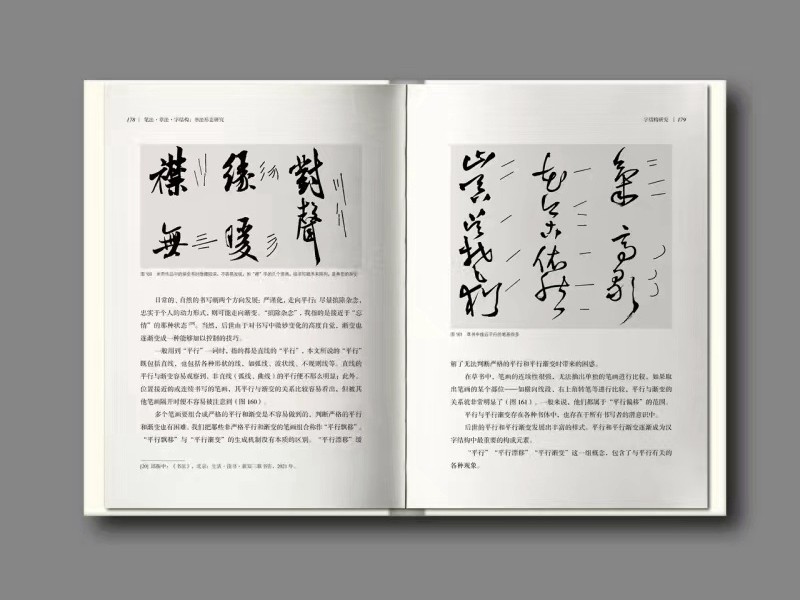 178 | 笔法·章法·字结构：书法形态研究
襟 缘 對
無 暖 聲
日常的、自然的书写朝两个方向发展：严谨化，走向平行；尽量摈除杂念，
忠实于个人的动力形式，则可能走向渐变。“摈除杂念”，我指的是接近于“忘
情”的那种状态[20]。当然，后世由于对书写中微妙变化的高度自觉，渐变也
逐渐变成一种能够加以控制的技巧。
一般用到“平行”一词时，指的都是直线的“平行”，本文所说的“平行”
既包括直线，也包括各种形状的线，如弧线、波状线、不规则线等。直线的
平行与渐变容易观察到，非直线（弧线、曲线）的平行便不那么明显；此外，
位置接近的或连续书写的笔画，其平行与渐变的关系比较容易看出，但被其
他笔画隔开时便不容易被注意到（图160）。
多个笔画要组合成严格的平行和渐变是不容易做到的，判断严格的平行
和渐变也有困难。我们把那些非严格平行和渐变的笔画组合称作“平行飘移”。
“平行飘移”与“平行渐变”的生成机制没有本质的区别。“平行漂移”缓
[20] 邱振中：《书法》，北京：生活·读书·新知三联书店，2021年。
字结构研究 | 179
图161 草书中接近平行的笔画很多
解了无法判断严格的平行和平行渐变时带来的困惑。
在草书中，笔画的连续性很强，无法抽出单独的笔画进行比较，如果取
出笔画的某个部位——如横向线段、右上角转笔等进行比较，平行与渐变的
关系就非常明显了（图161）。一般来说，他们都属于“平行偏移”的范围。
平行与平行渐变存在各种书体中，也存在于所有书写者的潜意识中。
后世的平行和平行渐变发展出丰富的样式。平行和平行渐变逐渐成为汉
字结构中最重要的构成元素。
“平行”“平行漂移”“平行渐变”这一组概念，包含了与平行有关的
各种现象。